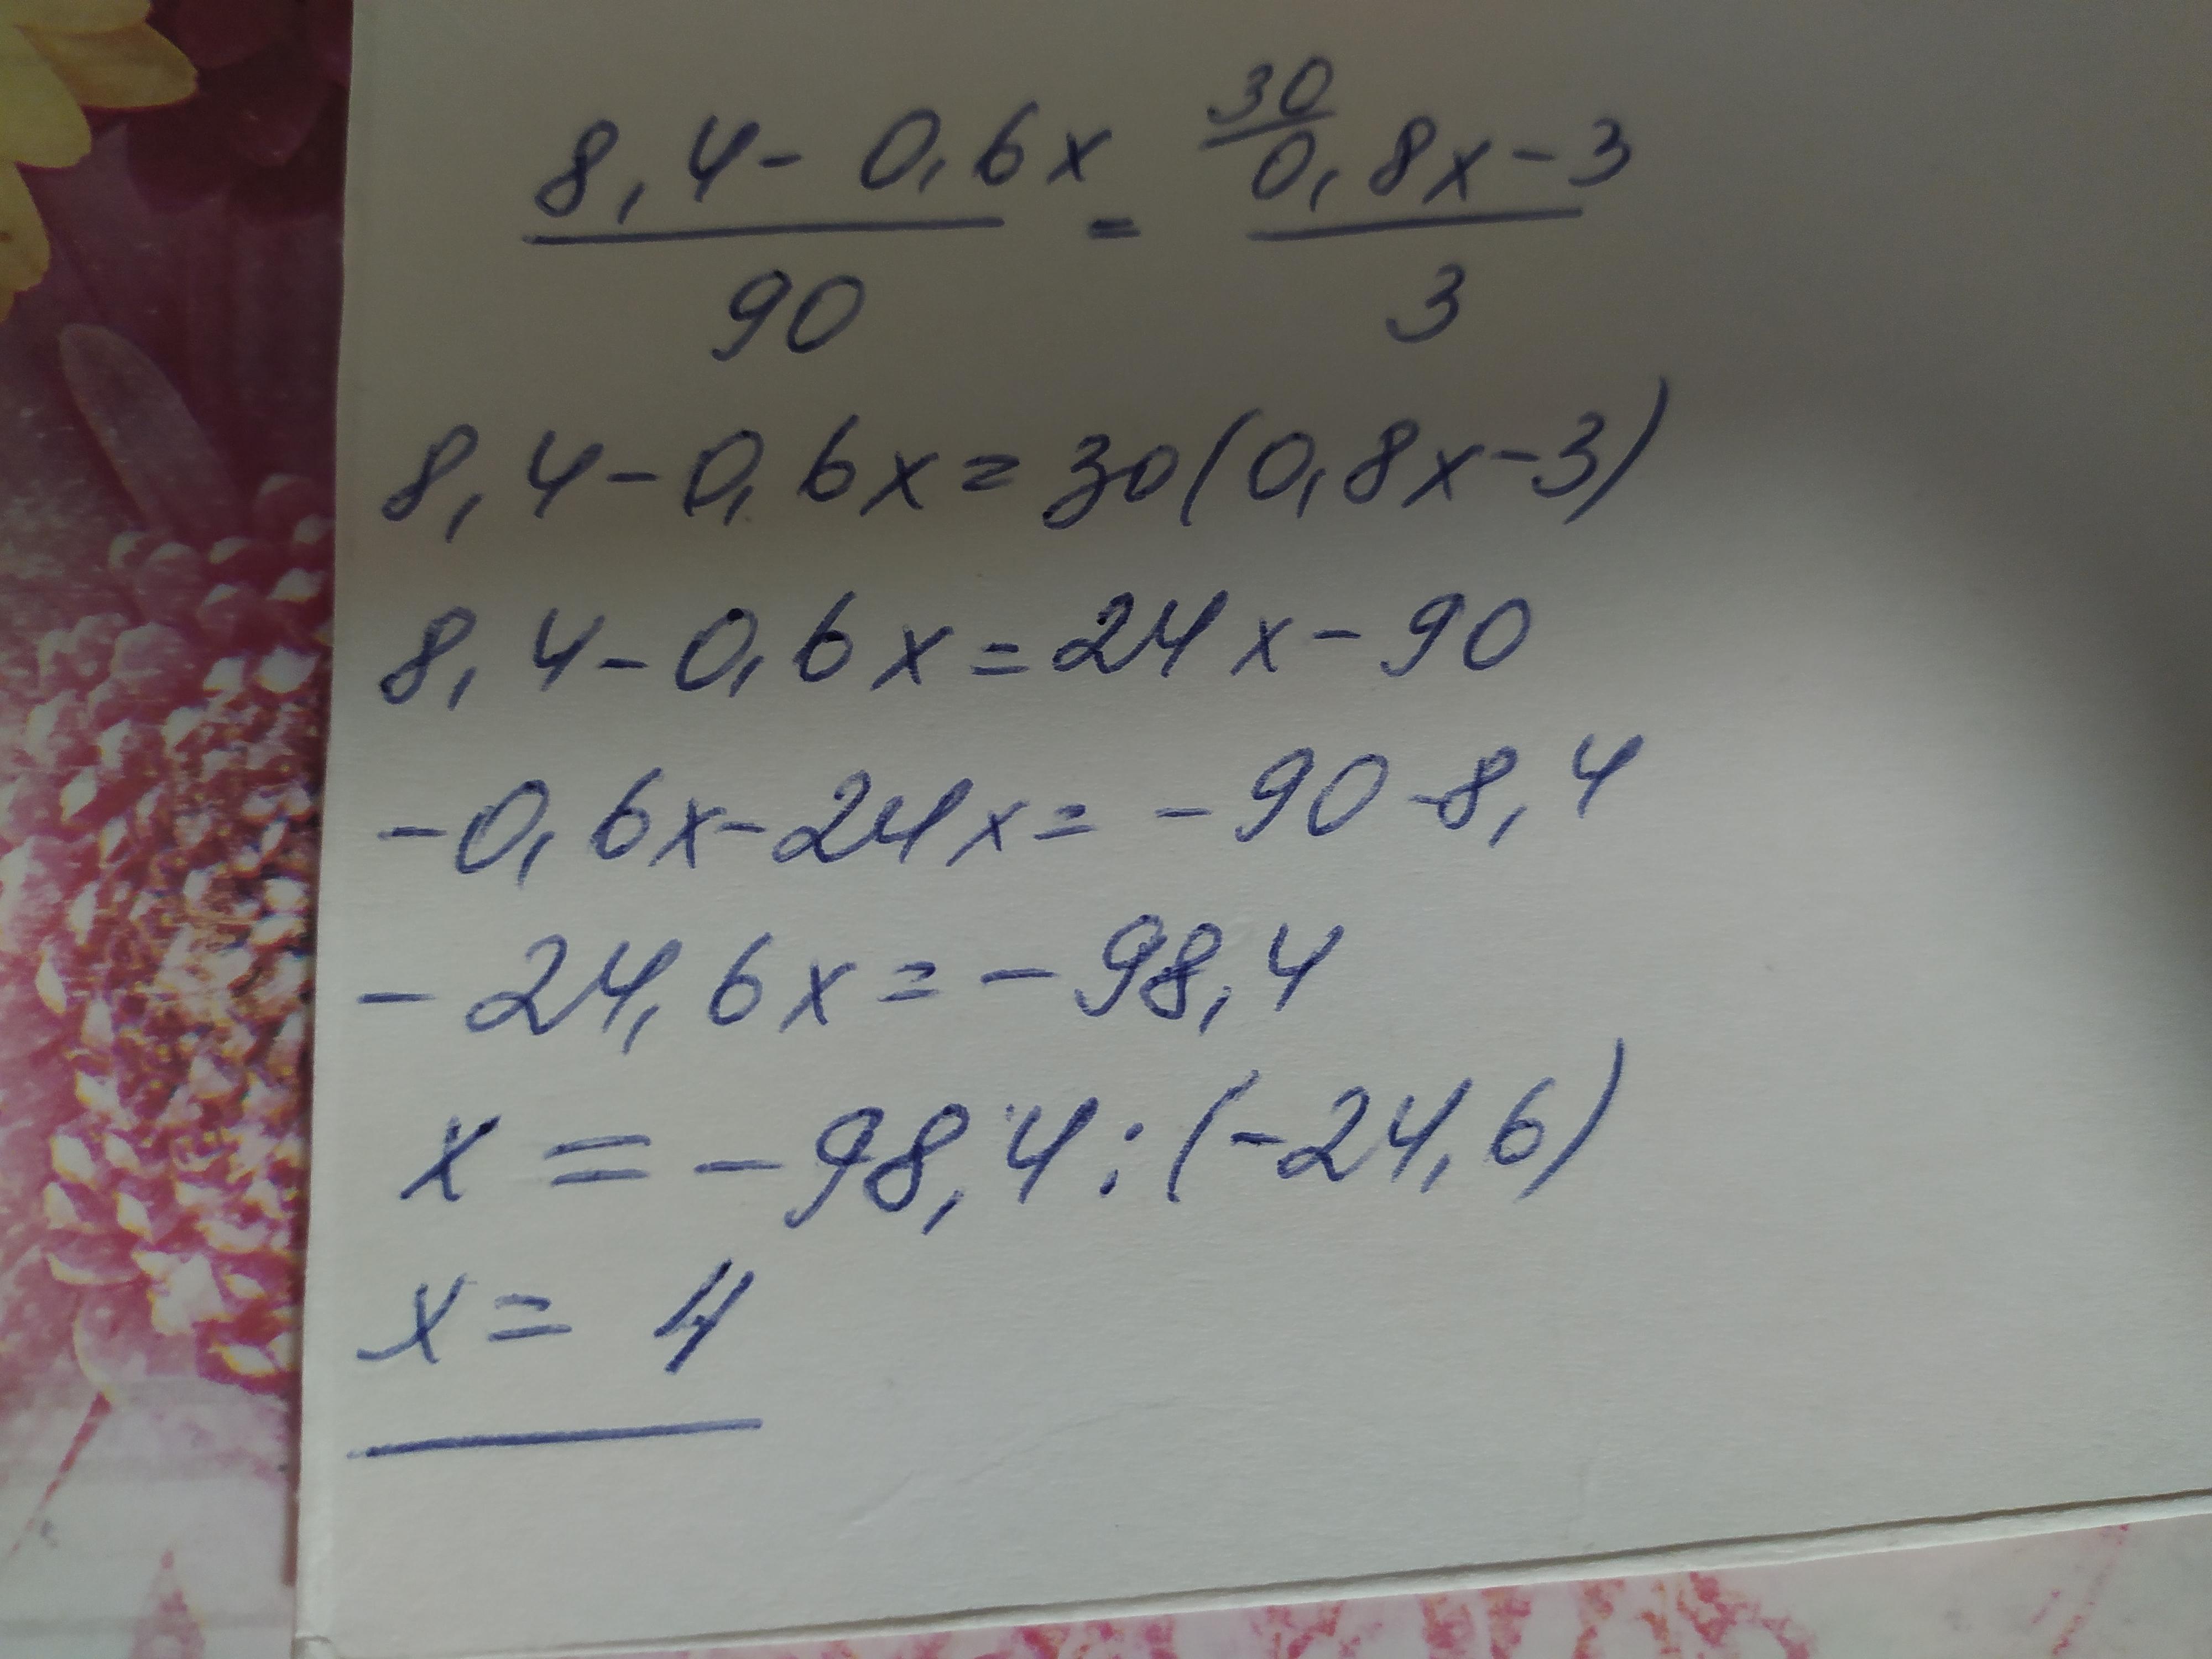 30
8,4 - 0,6x = 0,8x - 3
90 3
8,4 - 0,6x = 30(0,8x - 3)
8,4 - 0,6x = 24x - 90
- 0,6x - 24x = - 90 - 8,4
- 24,6x = - 98,4
x = - 98,4 : (-24,6)
x = 4